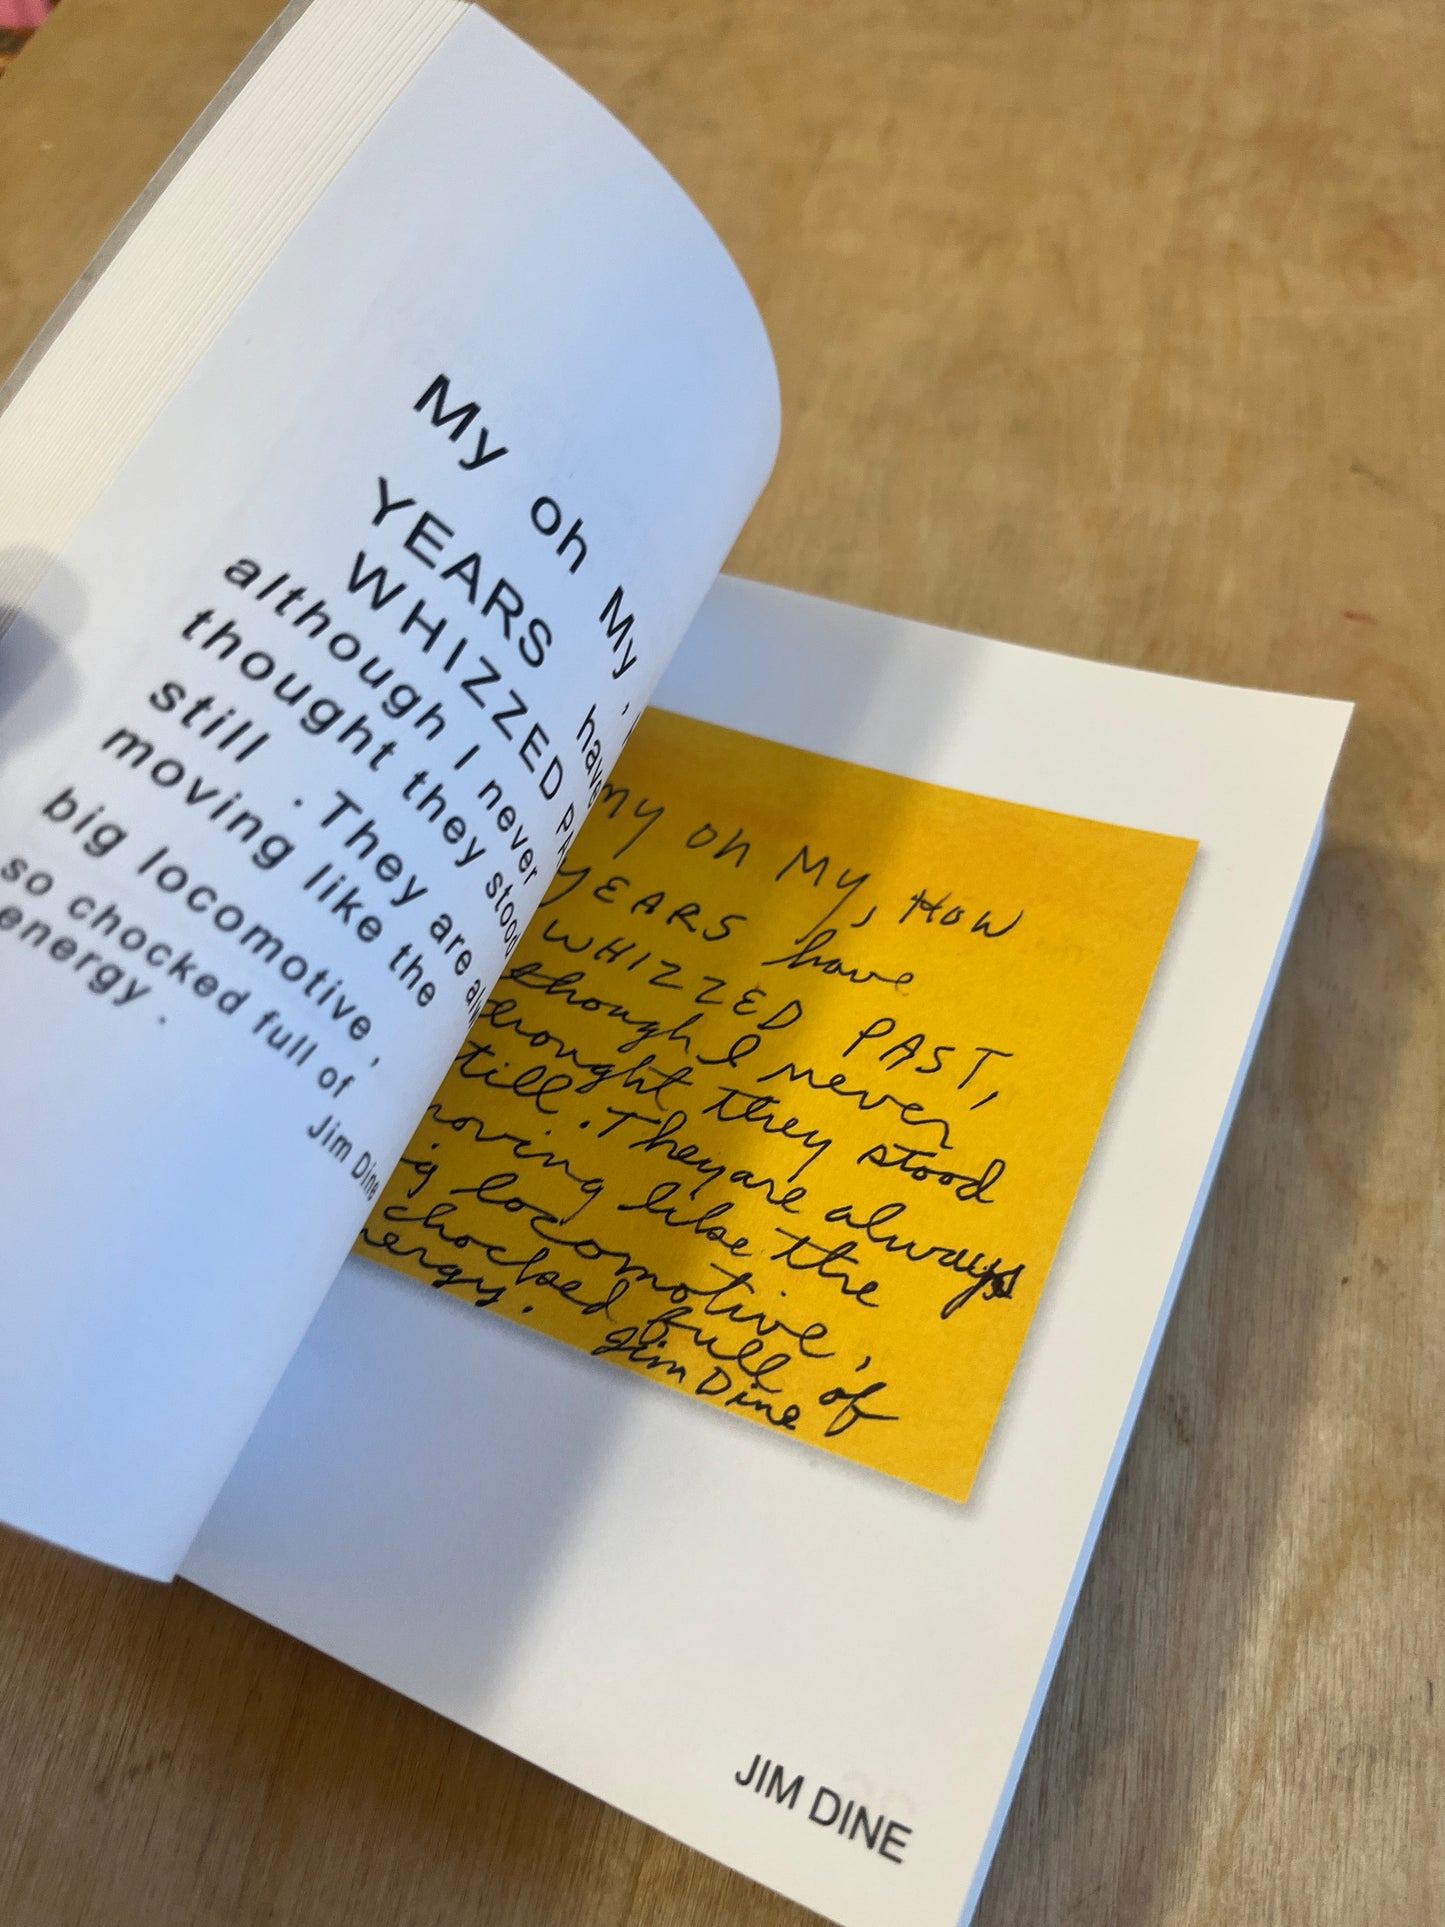 My oh My ,
YEARS have
WHIZZED PA
although I never
thought they stood
still . They are alw
moving like the
big locomotive ,
so chocked full of
energy .
Jim Dine
MY oh MY, HOW
YEARS have
WHIZZED PAST,
though I never
hought they stood
till. They are always
oving like the
ig locomotive,
chocked full of
nergy.
Jim Dine
JIM DINE